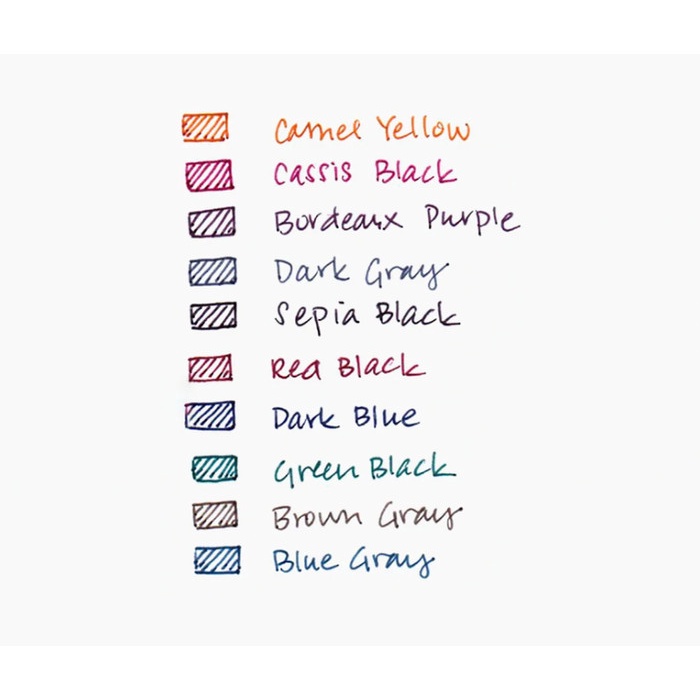 Camel Yellow
Cassis Black
Bordeaux Purple
Dark Gray
Sepia Black
Red Black
Dark Blue
Green Black
Brown Gray
Blue Gray